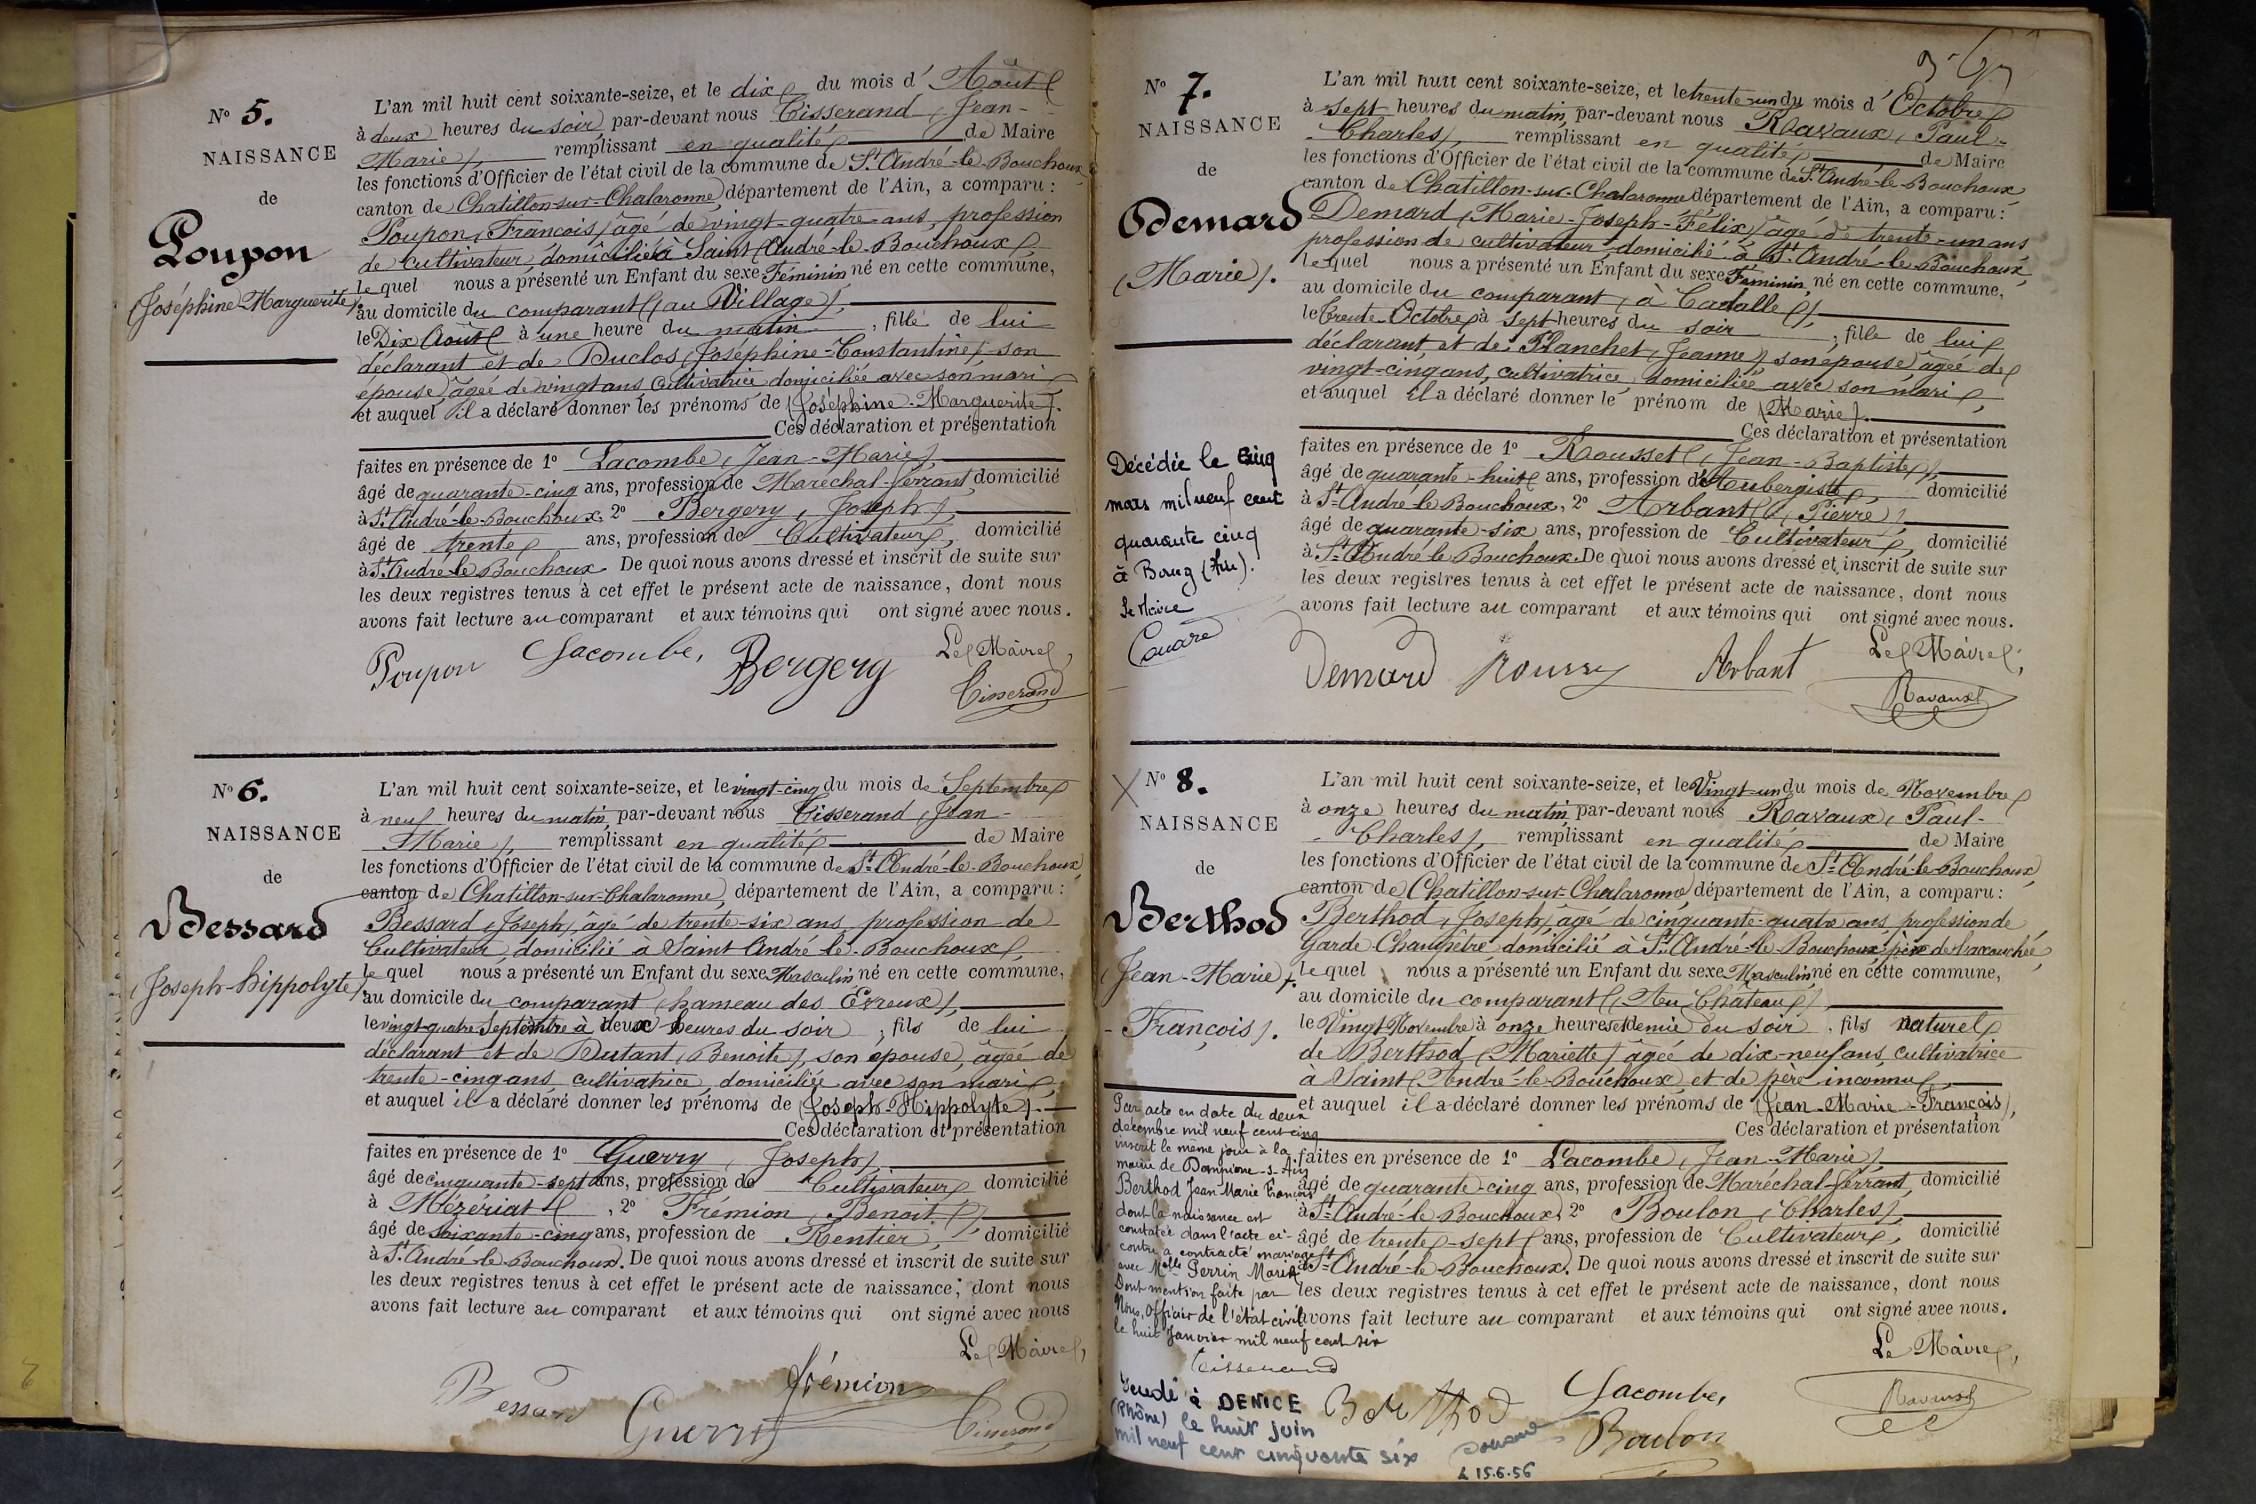 N° 5.
NAISSANCE
de
Poupon
(Joséphine-Marguerite).
L'an mil huit cent soixante-seize, et le dix du mois d'Août
à deux heures du soir par-devant nous Tisserand (Jean-
Marie), remplissant en qualité de Maire
les fonctions d'Officier de l'état civil de la commune de St André-le-Bouchoux
canton de Chatillon-sur-Chalaronne, département de l'Ain, a comparu :
Poupon (François) âgé de vingt-quatre ans, profession
de cultivateur, domicilié à Saint André-le-Bouchoux,
lequel nous a présenté un Enfant du sexe Féminin né en cette commune,
au domicile du comparant (au Village),
le Dix Août à une heure du matin, fille de lui
déclarant et de Duclos (Joséphine-Constantine), son
épouse, âgée de vingt ans, cultivatrice domiciliée avec son mari,
et auquel il a déclaré donner les prénoms de (Joséphine-Marguerite).
Ces déclaration et présentation
faites en présence de 1° Lacombe (Jean-Marie),
âgé de quarante-cinq ans, profession de Maréchal-ferrant, domicilié
à St André-le-Bouchoux, 2° Bergery (Joseph),
âgé de trente ans, profession de Cultivateur, domicilié
à St André-le-Bouchoux. De quoi nous avons dressé et inscrit de suite sur
les deux registres tenus à cet effet le présent acte de naissance, dont nous
avons fait lecture au comparant et aux témoins qui ont signé avec nous.
Le Maire,
Poupon Lacombe, Bergery
Tisserand
N° 6.
NAISSANCE
de
Bessard
(Joseph-hippolyte).
L'an mil huit cent soixante-seize, et le vingt-cinq du mois de Septembre
à neuf heures du matin, par-devant nous Tisserand (Jean-
Marie), remplissant en qualité de Maire
les fonctions d'Officier de l'état civil de la commune de St André-le-Bouchoux,
canton de Chatillon-sur-Chalaronne, département de l'Ain, a comparu :
Bessard (Joseph), âgé de trente-six ans, profession de
Cultivateur, domicilié à Saint André-le-Bouchoux,
lequel nous a présenté un Enfant du sexe Masculin né en cette commune,
au domicile du comparant (hameau des Evreux),
le vingt-quatre Septembre à deux heures du soir, fils de lui
déclarant et de Dutant (Benoite), son épouse, âgée de
trente-cinq ans, cultivatrice, domiciliée avec son mari,
et auquel il a déclaré donner les prénoms de (Joseph-Hippolyte).
Ces déclaration et présentation
faites en présence de 1° Guerry (Joseph),
âgé de cinquante-sept ans, profession de Cultivateur domicilié
à Mézériat, 2° Frémion (Benoit),
âgé de soixante-cinq ans, profession de Rentier, domicilié
à St André-le-Bouchoux. De quoi nous avons dressé et inscrit de suite sur
les deux registres tenus à cet effet le présent acte de naissance, dont nous
avons fait lecture au comparant et aux témoins qui ont signé avec nous
Le Maire,
Bessard Guerry Frémion
Tisserand
N° 7.
NAISSANCE
de
Demard
(Marie).
Décédée le cinq
mars mil neuf cent
quarante cinq
à Bourg (Ain).
Le Maire
L'an mil huit cent soixante-seize, et le trente-un du mois d'Octobre
à sept heures du matin, par-devant nous Ravaux (Paul-
Charles), remplissant en qualité de Maire
les fonctions d'Officier de l'état civil de la commune de St André-le-Bouchoux
canton de Chatillon-sur-Chalaronne département de l'Ain, a comparu :
Demard (Marie-Joseph-Félix) âgé de trente-un ans
profession de cultivateur, domicilié à St André-le-Bouchoux,
lequel nous a présenté un Enfant du sexe Féminin, né en cette commune,
au domicile du comparant, à Cadalle),
le Trente Octobre à sept heures du soir, fille de lui
déclarant et de Planchet (Jeanne), son épouse, âgée de
vingt-cinq ans, cultivatrice, domiciliée avec son mari,
et auquel il a déclaré donner le prénom de (Marie).
Ces déclaration et présentation
faites en présence de 1° Rousset (Jean-Baptiste),
âgé de quarante-huit ans, profession d'Aubergiste, domicilié
à St André-le-Bouchoux, 2° Arbant (Pierre),
âgé de quarante-six ans, profession de Cultivateur, domicilié
à St André-le-Bouchoux. De quoi nous avons dressé et inscrit de suite sur
les deux registres tenus à cet effet le présent acte de naissance, dont nous
avons fait lecture au comparant et aux témoins qui ont signé avec nous.
Le Maire,
Demard Arbant
Ravaux
N° 8.
NAISSANCE
de
Berthod
(Jean-Marie-
-François).
Par acte en date du deux
décembre mil neuf cent cinq
inscrit le même jour à la
mairie de Dompierre-s-Ain
Berthod Jean Marie François
dont la naissance est
constatée dans l'acte ci-
contre a contracté mariage
avec Melle Perrin Marie
Dont mention faite par
Nous, Officier de l'état civil
le huit Janvier mil neuf cent six
Tisserand
Décédé à DENICE
(Rhône) le huit juin
mil neuf cent cinquante six
L 15.6.56
L'an mil huit cent soixante-seize, et le Vingt-un du mois de Novembre
à onze heures du matin, par-devant nous Ravaux (Paul-
-Charles), remplissant en qualité de Maire
les fonctions d'Officier de l'état civil de la commune de St André-le-Bouchoux,
canton de Chatillon-sur-Chalaronne, département de l'Ain, a comparu :
Berthod (Joseph), âgé de cinquante-quatre ans, profession de
Garde Champêtre, domicilié à St André-le-Bouchoux, père de l'accouchée,
lequel nous a présenté un Enfant du sexe Masculin, né en cette commune,
au domicile du comparant (Au Château),
le Vingt Novembre à onze heures et demie du soir, fils naturel
de Berthod (Mariette) âgée de dix-neuf ans, cultivatrice
à Saint André-le-Bouchoux et de père inconnu,
et auquel il a déclaré donner les prénoms de (Jean-Marie-François),
Ces déclaration et présentation
faites en présence de 1° Lacombe (Jean-Marie),
âgé de quarante-cinq ans, profession de Maréchal-ferrant, domicilié
à St André-le-Bouchoux, 2° Boulon (Charles),
âgé de trente-sept ans, profession de Cultivateur, domicilié
à St André-le-Bouchoux. De quoi nous avons dressé et inscrit de suite sur
les deux registres tenus à cet effet le présent acte de naissance, dont nous
avons fait lecture au comparant et aux témoins qui ont signé avec nous.
Le Maire,
Berthod Lacombe,
Boulon
Ravaux